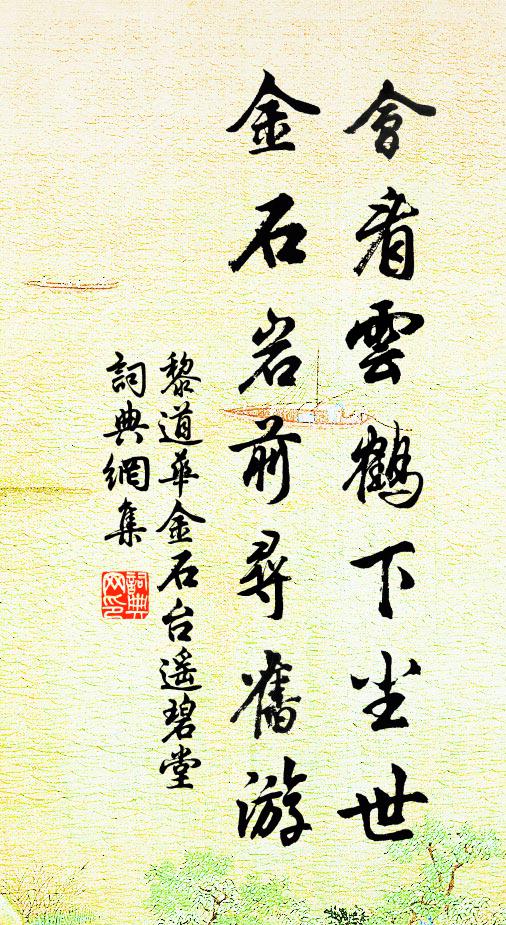 會看雲鶴下尘世
金石岩前尋舊游
黎道華金石台遥碧堂
詞典網集
詞典网印